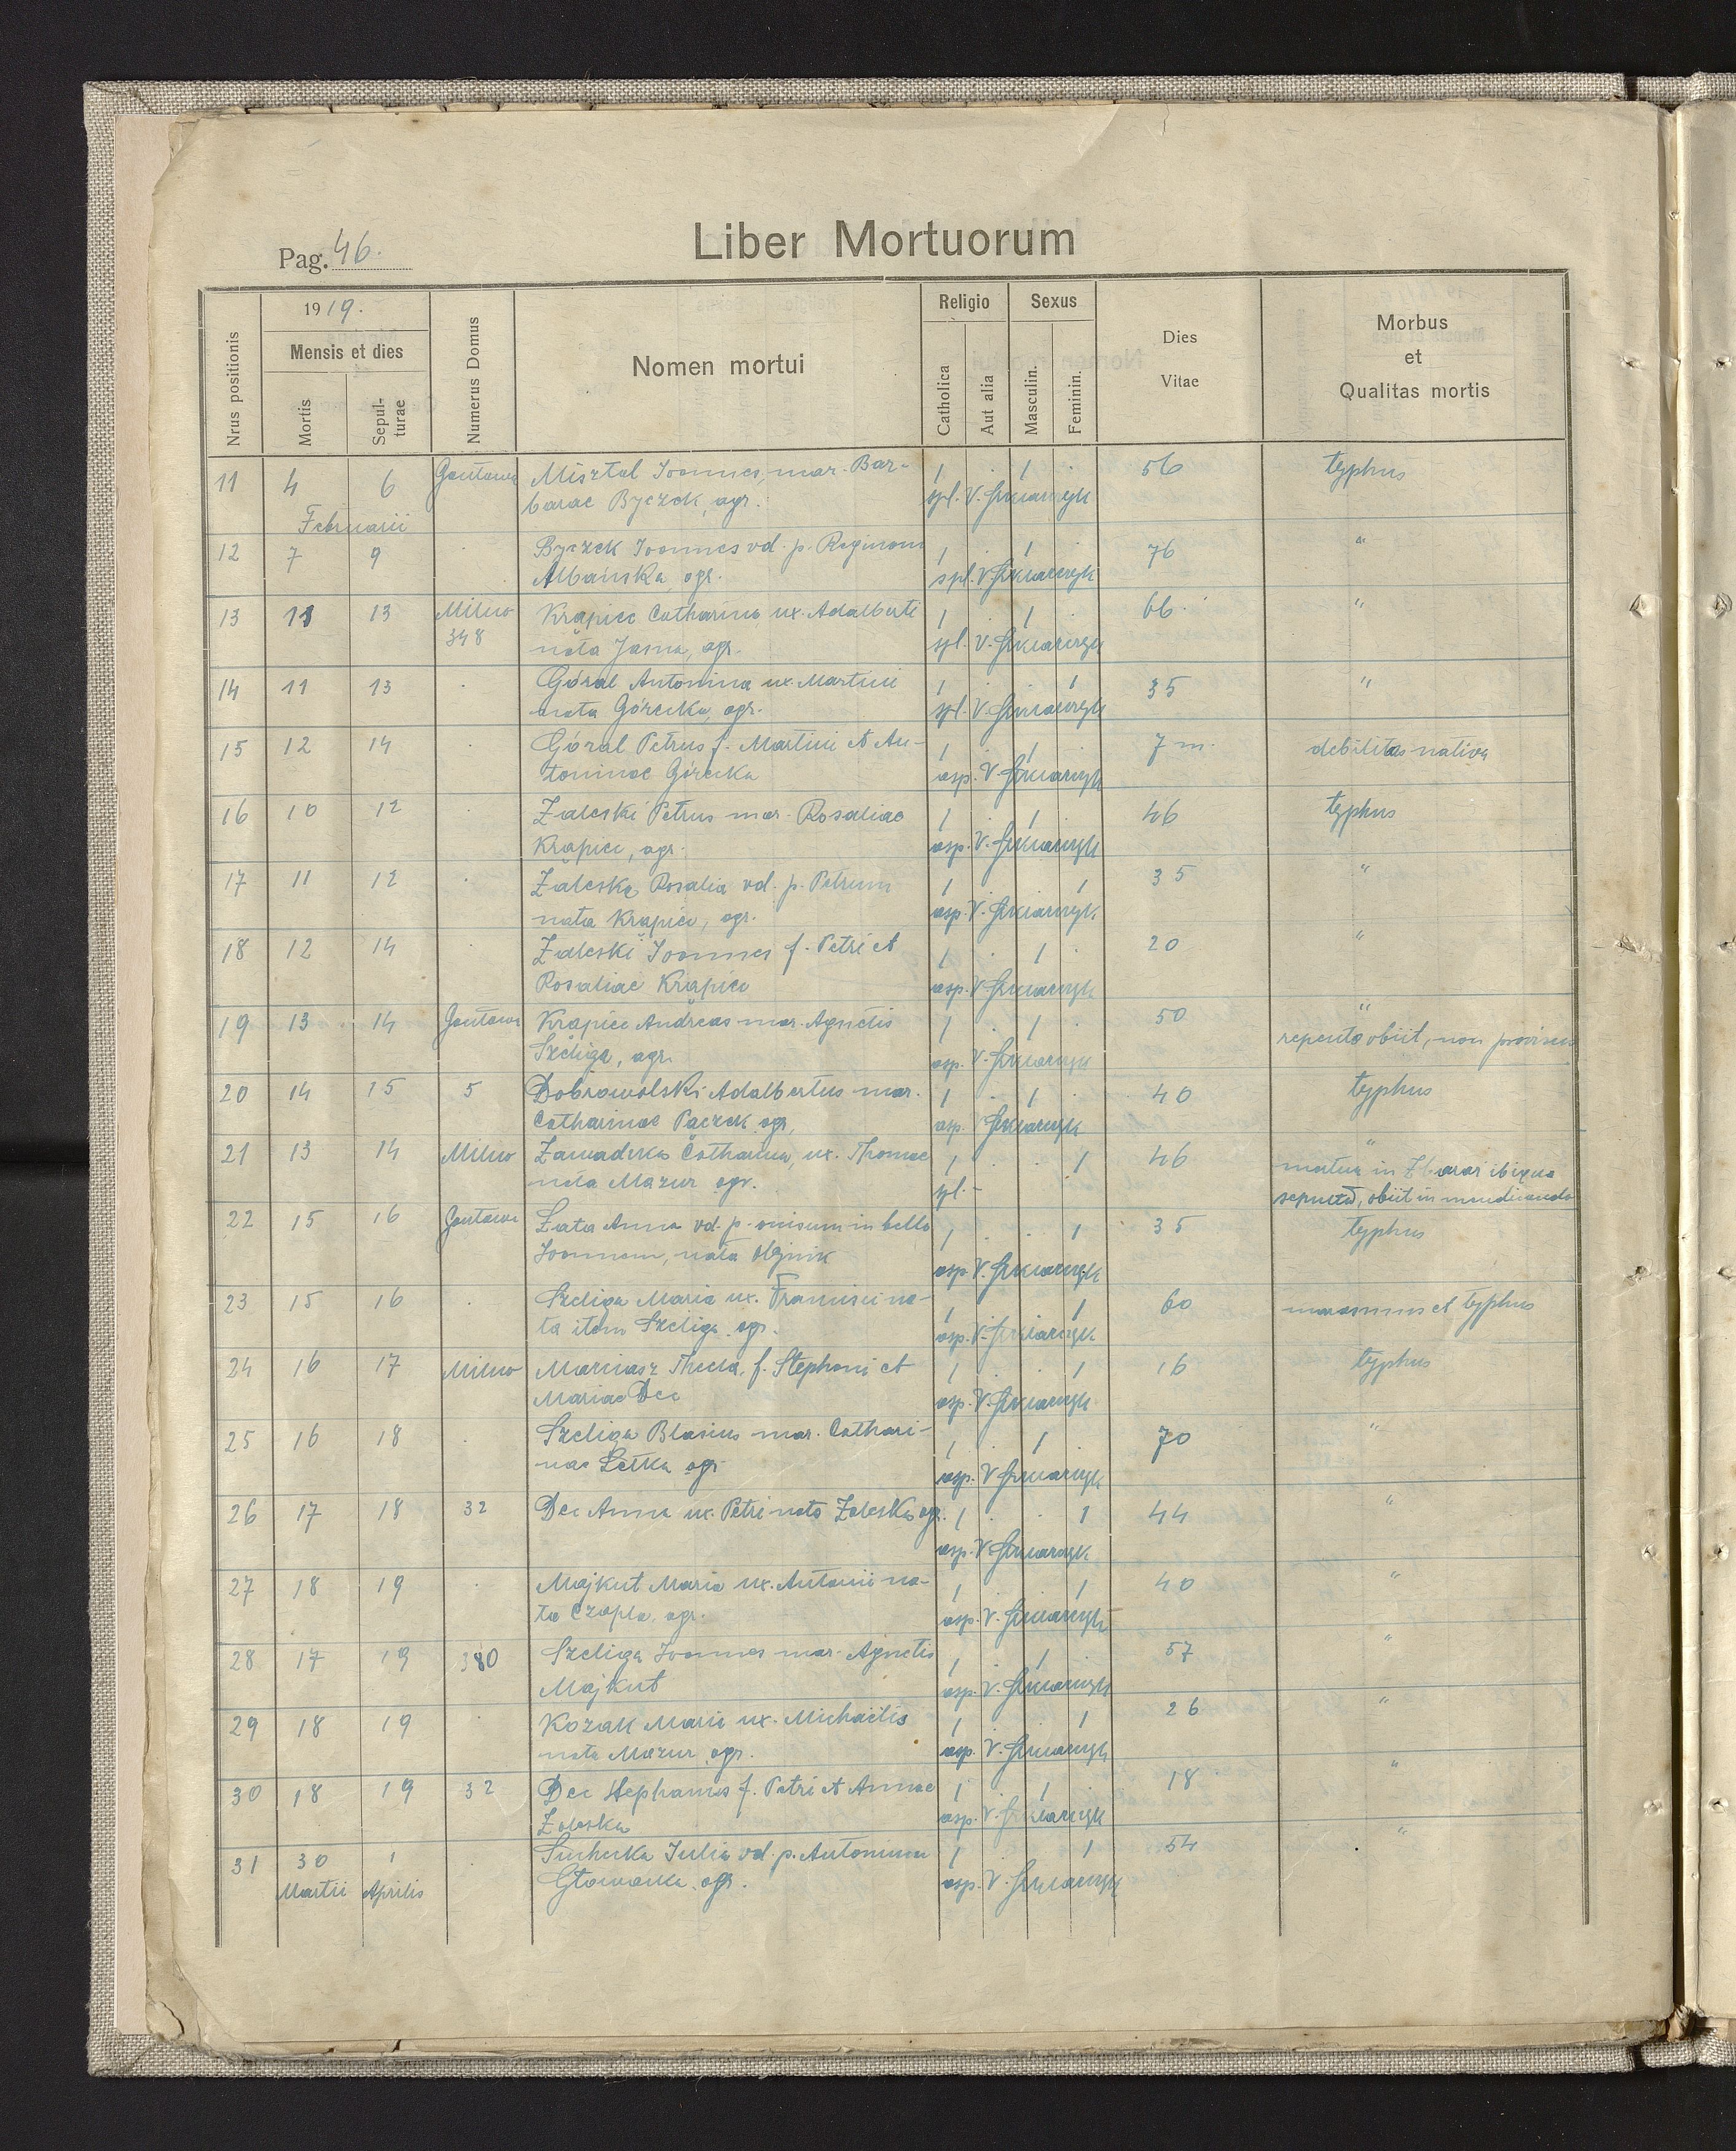 Pag. 46.
Liber Mortuorum
Nrus positionis
1919.
Mensis et dies
Mortis
Sepulturae
Numerus Domus
Nomen mortui
Religio
Catholica
Aut alia
Sexus
Masculin.
Feminin.
Dies Vitae
Morbus et Qualitas mortis
11 4 6 Gontowa Misztal Joannes, mar. Bar- 1 . 1 . 56 typhus
Februarii barae Byczek, agr. spl. V. Szkiarczyk
12 7 9 . Byczek Joannes vd. p. Reginam 1 . 1 . 76 "
Albańska, agr. spl. V. Szkiarczyk
13 11 13 Milno Krąpiec Catharina ux. Adalberti 1 . 1 . 66 "
348 nata Jasna, agr. spl. V. Szkiarczyk
14 11 13 . Góral Antonina ux. Martini 1 . . 1 35 "
nata Górecka, agr. spl. V. Szkiarczyk
15 12 14 . Góral Petrus f. Martini et An- 1 . 1 . 7 m. debilitas nativa
toninae Górecka asp. V. Szkiarczyk
16 10 12 . Zaleski Petrus mar. Rosaliae 1 . 1 . 46 typhus
Krąpiec, agr. asp. V. Szkiarczyk
17 11 12 . Zaleska Rosalia vd. p. Petrum 1 . . 1 35 "
nata Krąpiec, agr. asp. V. Szkiarczyk
18 12 14 . Zaleski Joannes f. Petri et 1 . 1 . 20 "
Rosaliae Krąpiec asp. V. Szkiarczyk
19 13 14 Gontowa Krąpiec Andreas mar. Agnetis 1 . 1 . 50 "
Szeliga, agr. asp. V. Szkiarczyk repente obiit, non provisus
20 14 15 5 Dobrowolski Adalbertus mar. 1 . 1 . 40 typhus
Catharinae Paczek agr. asp. V Szkiarczyk
21 13 14 Milno Zawadzka Catharina, ux. Thomae 1 . . 1 46 "
nata Mazur agr. spl. - mortua in Zbaraż ibique
sepulta, obiit in mendicando
22 15 16 Gontowa Łata Anna vd. p. onisum in bello 1 . . 1 35 typhus
Joannem, nata Olejnik asp. V. Szkiarczyk
23 15 16 . Szeliga Maria ux. Francisci na- 1 . . 1 60 marasmus et typhus
ta item Szeliga agr. asp. V. Szkiarczyk
24 16 17 Milno Marciasz Thecla, f. Stephani et 1 . . 1 16 typhus
Mariae Dec asp. V. Szkiarczyk
25 16 18 . Szeliga Blasius mar. Cathari- 1 . 1 . 70 "
nae Letka agr asp. V Szkiarczyk
26 17 18 32 Dec Anna ux. Petri nata Zaleska agr. 1 . . 1 44 "
asp. V Szkiarczyk
27 18 19 . Majkut Maria ux. Antonii na- 1 . . 1 40 "
ta Czapla, agr. asp. V. Szkiarczyk
28 17 19 380 Szeliga Joannes mar. Agnetis 1 . 1 57 "
Majkut asp. V. Szkiarczyk
29 18 19 . Kozak Maria ux. Michaelis 1 . 1 26 "
nata Mazur agr. asp. V. Szkiarczyk
30 18 19 32 Dec Stephanus f. Petri et Annae 1 . 1 . 18 "
Zaleska asp. V. Szkiarczyk
31 30 1 . Suchecka Julia vd. p. Antonium 1 . 1 54 "
Martii Aprilis Głowacka agr. asp. V. Szkiarczyk